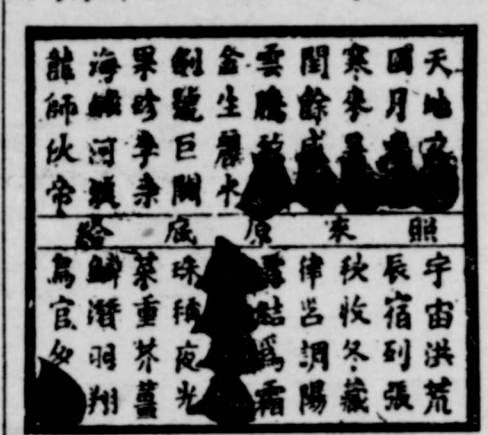 天地
月
寒來
閏餘成
雲騰致
金生麗水
劒號巨闕
果珍李柰
海鹹河淡
龍師火帝
照來原底
宇宙洪荒
辰宿列張
秋收冬藏
律呂調陽
露結爲霜
珠稱夜光
菜重芥薑
鱗潛羽翔
鳥官